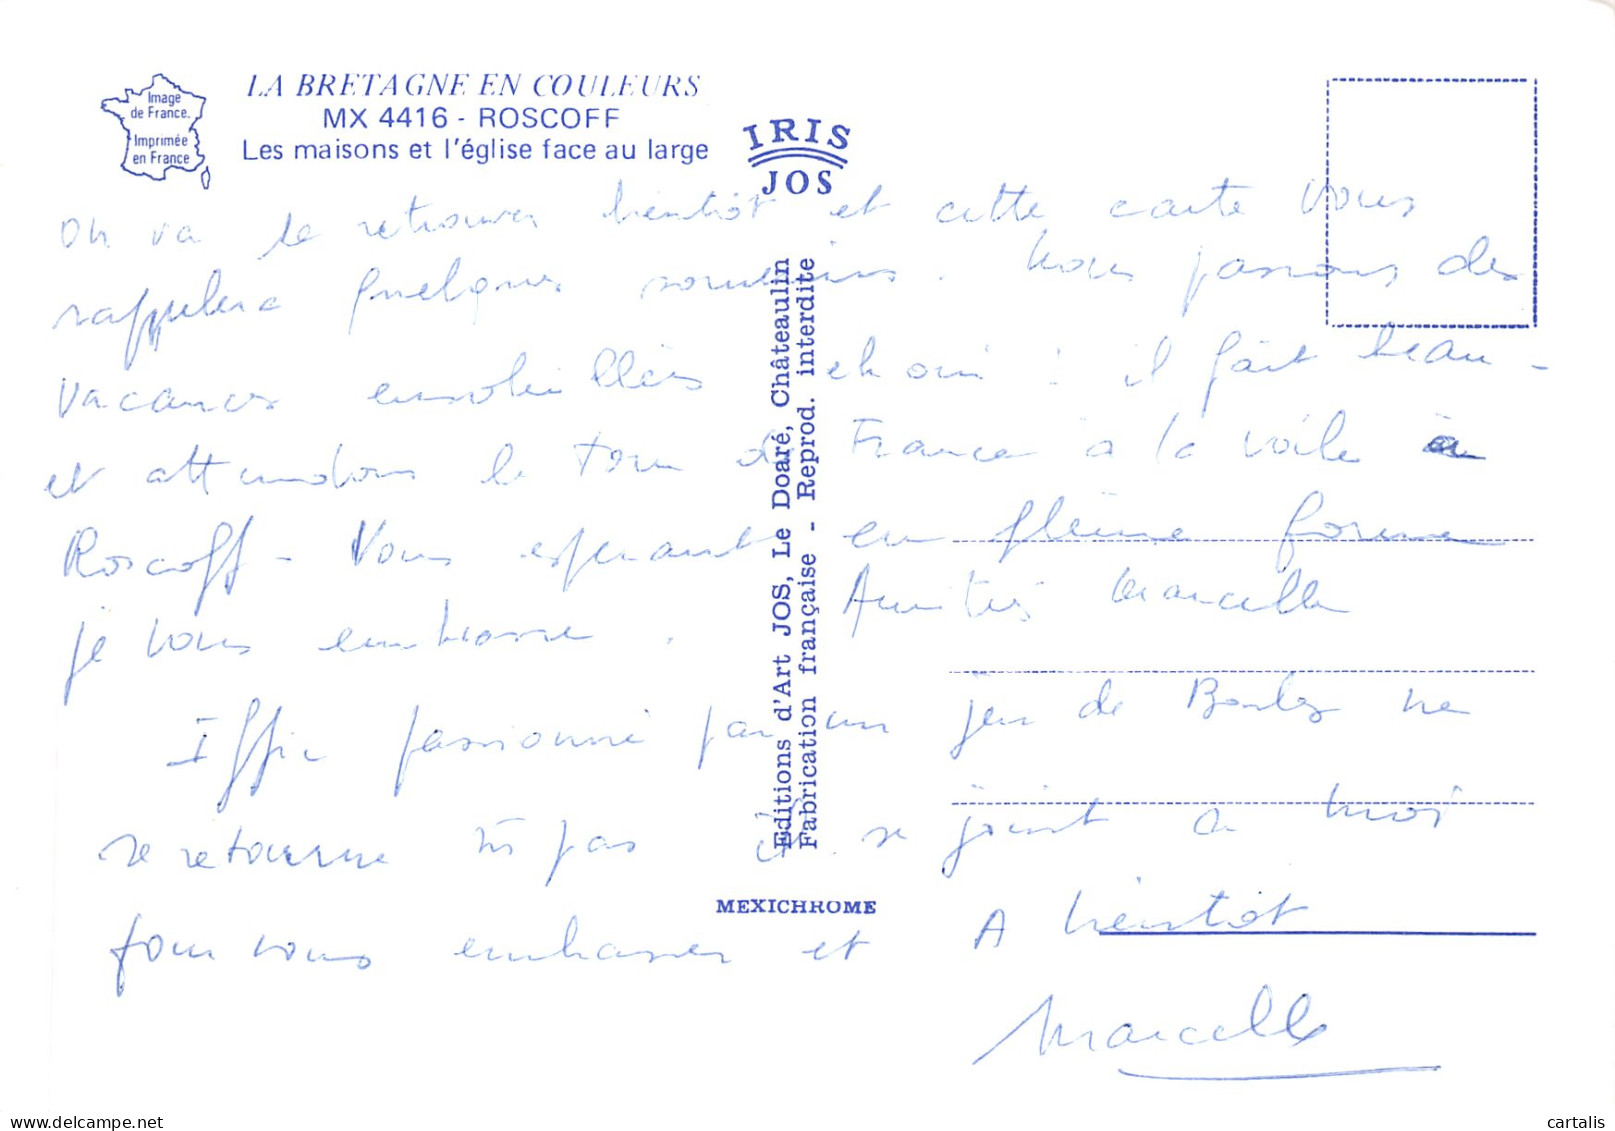 LA BRETAGNE EN COULEURS
MX 4416 - ROSCOFF
Les maisons et l'église face au large
Image
de France.
Imprimée
en France
IRIS
JOS
On va se retrouver bientôt et cette carte vous
rappelera quelques souvenirs. Nous passons des
vacances ensoleillées eh oui ! il fait beau -
et attendons le tour de France à la voile à
Roscoff - Vous esperant en pleine forme
je vous embrasse. Amitiés Marcelle
passionné par un jeu de Boules ne
se retourne pas il se joint a moi
pour vous embrasser et A bientot
Marcelle
Editions d'Art JOS, Le Doaré, Châteaulin
Fabrication française - Reprod. interdite
MEXICHROME
cartalis